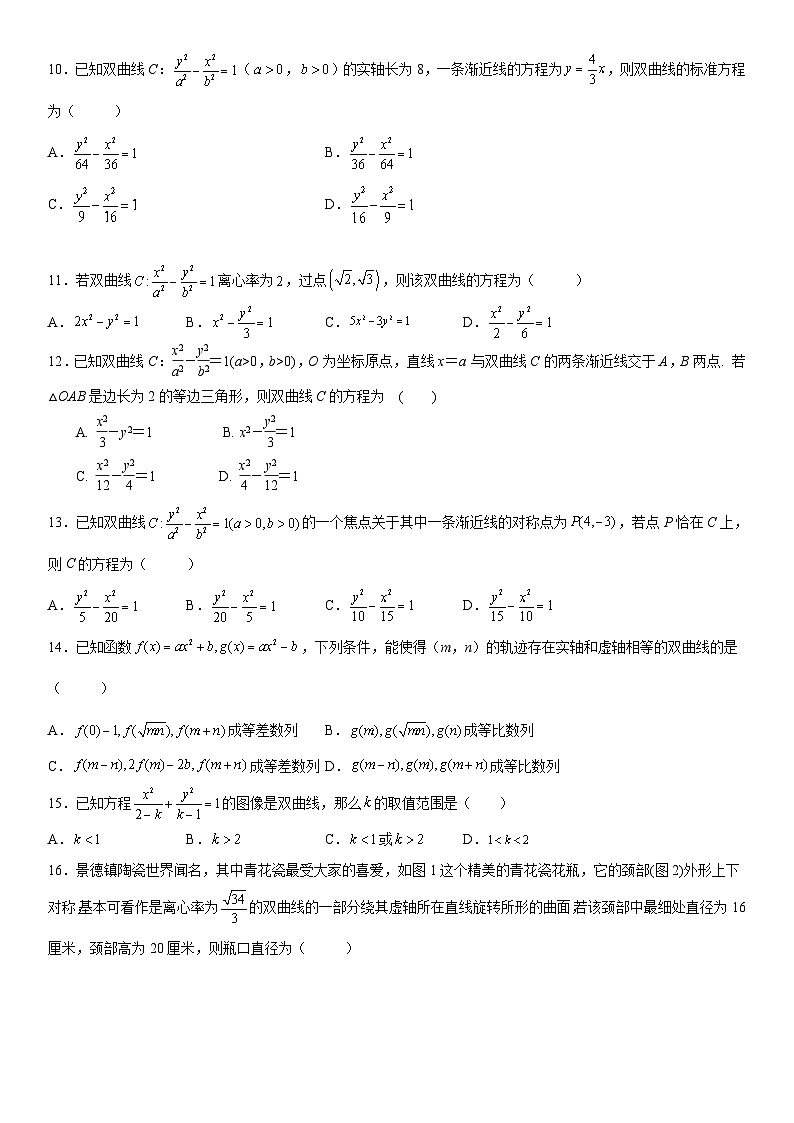 10．已知双曲线 C：y²/a² − x²/b² = 1（a > 0，b > 0）的实轴长为 8，一条渐近线的方程为 y = 4/3 x，则双曲线的标准方程
为（　　）
A．y²/64 − x²/36 = 1　　B．y²/36 − x²/64 = 1
C．y²/9 − x²/16 = 1　　D．y²/16 − x²/9 = 1
11．若双曲线 C : x²/a² − y²/b² = 1 离心率为 2，过点 (√2, √3)，则该双曲线的方程为（　　）
A．2x² − y² = 1　　B．x² − y²/3 = 1　　C．5x² − 3y² = 1　　D．x²/2 − y²/6 = 1
12．已知双曲线 C：x²/a²−y²/b²＝1(a>0，b>0)，O 为坐标原点，直线 x＝a 与双曲线 C 的两条渐近线交于 A，B 两点. 若
△OAB 是边长为 2 的等边三角形，则双曲线 C 的方程为 （　　）
A. x²/3−y²＝1　　B. x²−y²/3＝1
C. x²/12−y²/4＝1　　D. x²/4−y²/12＝1
13．已知双曲线 C : y²/a² − x²/b² = 1(a > 0, b > 0) 的一个焦点关于其中一条渐近线的对称点为 P(4,−3)，若点 P 恰在 C 上，
则 C 的方程为（　　）
A．y²/5 − x²/20 = 1　　B．y²/20 − x²/5 = 1　　C．y²/10 − x²/15 = 1　　D．y²/15 − x²/10 = 1
14．已知函数 f(x) = ax² + b, g(x) = ax² − b，下列条件，能使得（m，n）的轨迹存在实轴和虚轴相等的双曲线的是
（　　）
A．f(0) − 1, f(√mn), f(m + n) 成等差数列　　B．g(m), g(√mn), g(n) 成等比数列
C．f(m − n), 2f(m) − 2b, f(m + n) 成等差数列 D．g(m − n), g(m), g(m + n) 成等比数列
15．已知方程 x²/(2 − k) + y²/(k − 1) = 1 的图像是双曲线，那么 k 的取值范围是（　　）
A．k < 1　　B．k > 2　　C．k < 1 或 k > 2　　D．1 < k < 2
16．景德镇陶瓷世界闻名，其中青花瓷最受大家的喜爱，如图 1 这个精美的青花瓷花瓶，它的颈部(图 2)外形上下
对称 基本可看作是离心率为 √34/3 的双曲线的一部分绕其虚轴所在直线旋转所形的曲面 若该颈部中最细处直径为 16
厘米，颈部高为 20 厘米，则瓶口直径为（　　）